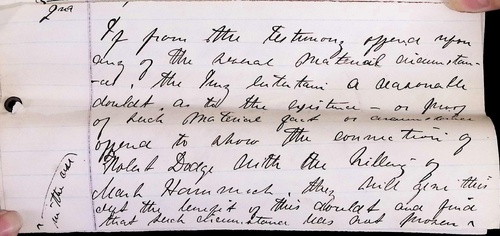 2nd
If from the testimony offered upon
any of the several material circumstan-
-ces, the Jury entertain a reasonable
doubt, as to the existence - or proof
of such material fact or circumstance
offered to show the connection of
Robert Dodge with the killing of
Mark Hammack, they will give this
deft the benefit of this doubt and find
that such circumstance was not proven
in the case